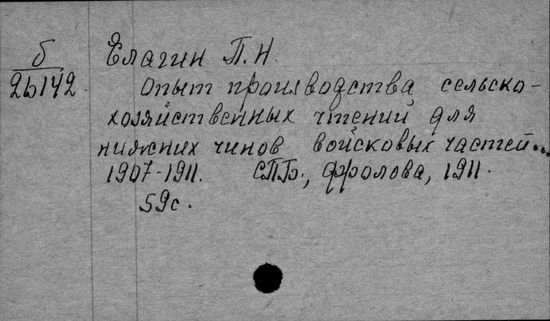 б
2b142.
Елагин П.Н.
Опыт производства сельско-
хозяйственных чтений для
нижних чинов войсковых частей...
1907-1911. СПБ, Фролова, 1911.
59с.